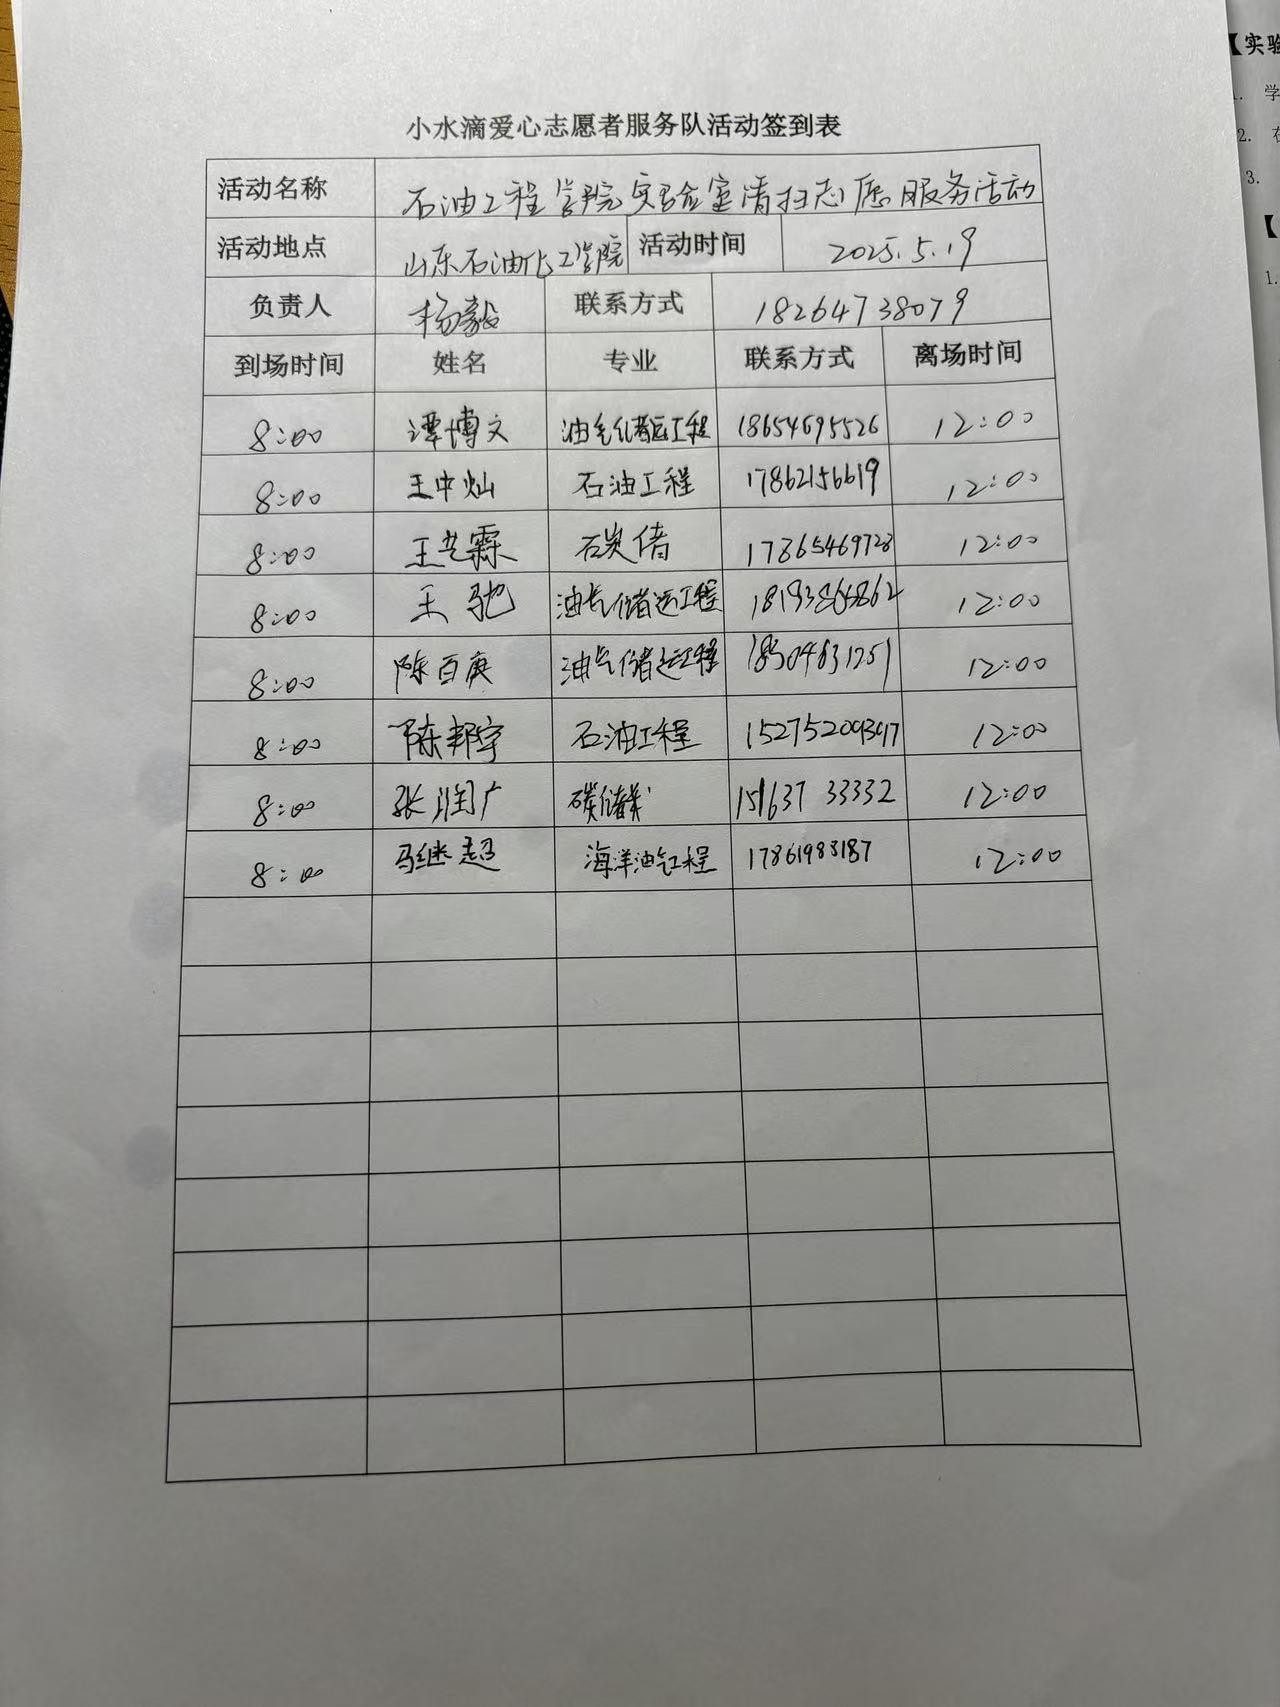 小水滴爱心志愿者服务队活动签到表
活动名称 石油工程学院实验室清扫志愿服务活动
活动地点 山东石油化工学院 活动时间 2025.5.19
负责人 杨毅 联系方式 18264738079
到场时间 姓名 专业 联系方式 离场时间
8:00 谭博文 油气储运工程 18654695526 12:00
8:00 王中灿 石油工程 17862156619 12:00
8:00 王艺霖 碳储 17865469728 12:00
8:00 王驰 油气储运工程 18193865862 12:00
8:00 陈百庚 油气储运工程 18504631251 12:00
8:00 陈邦宇 石油工程 12:00
8:00 张润广 碳储 15163733332 12:00
8:00 马继超 海洋油气工程 17861983187 12:00
【实验
1. 学
2. 在
3.
【
1.